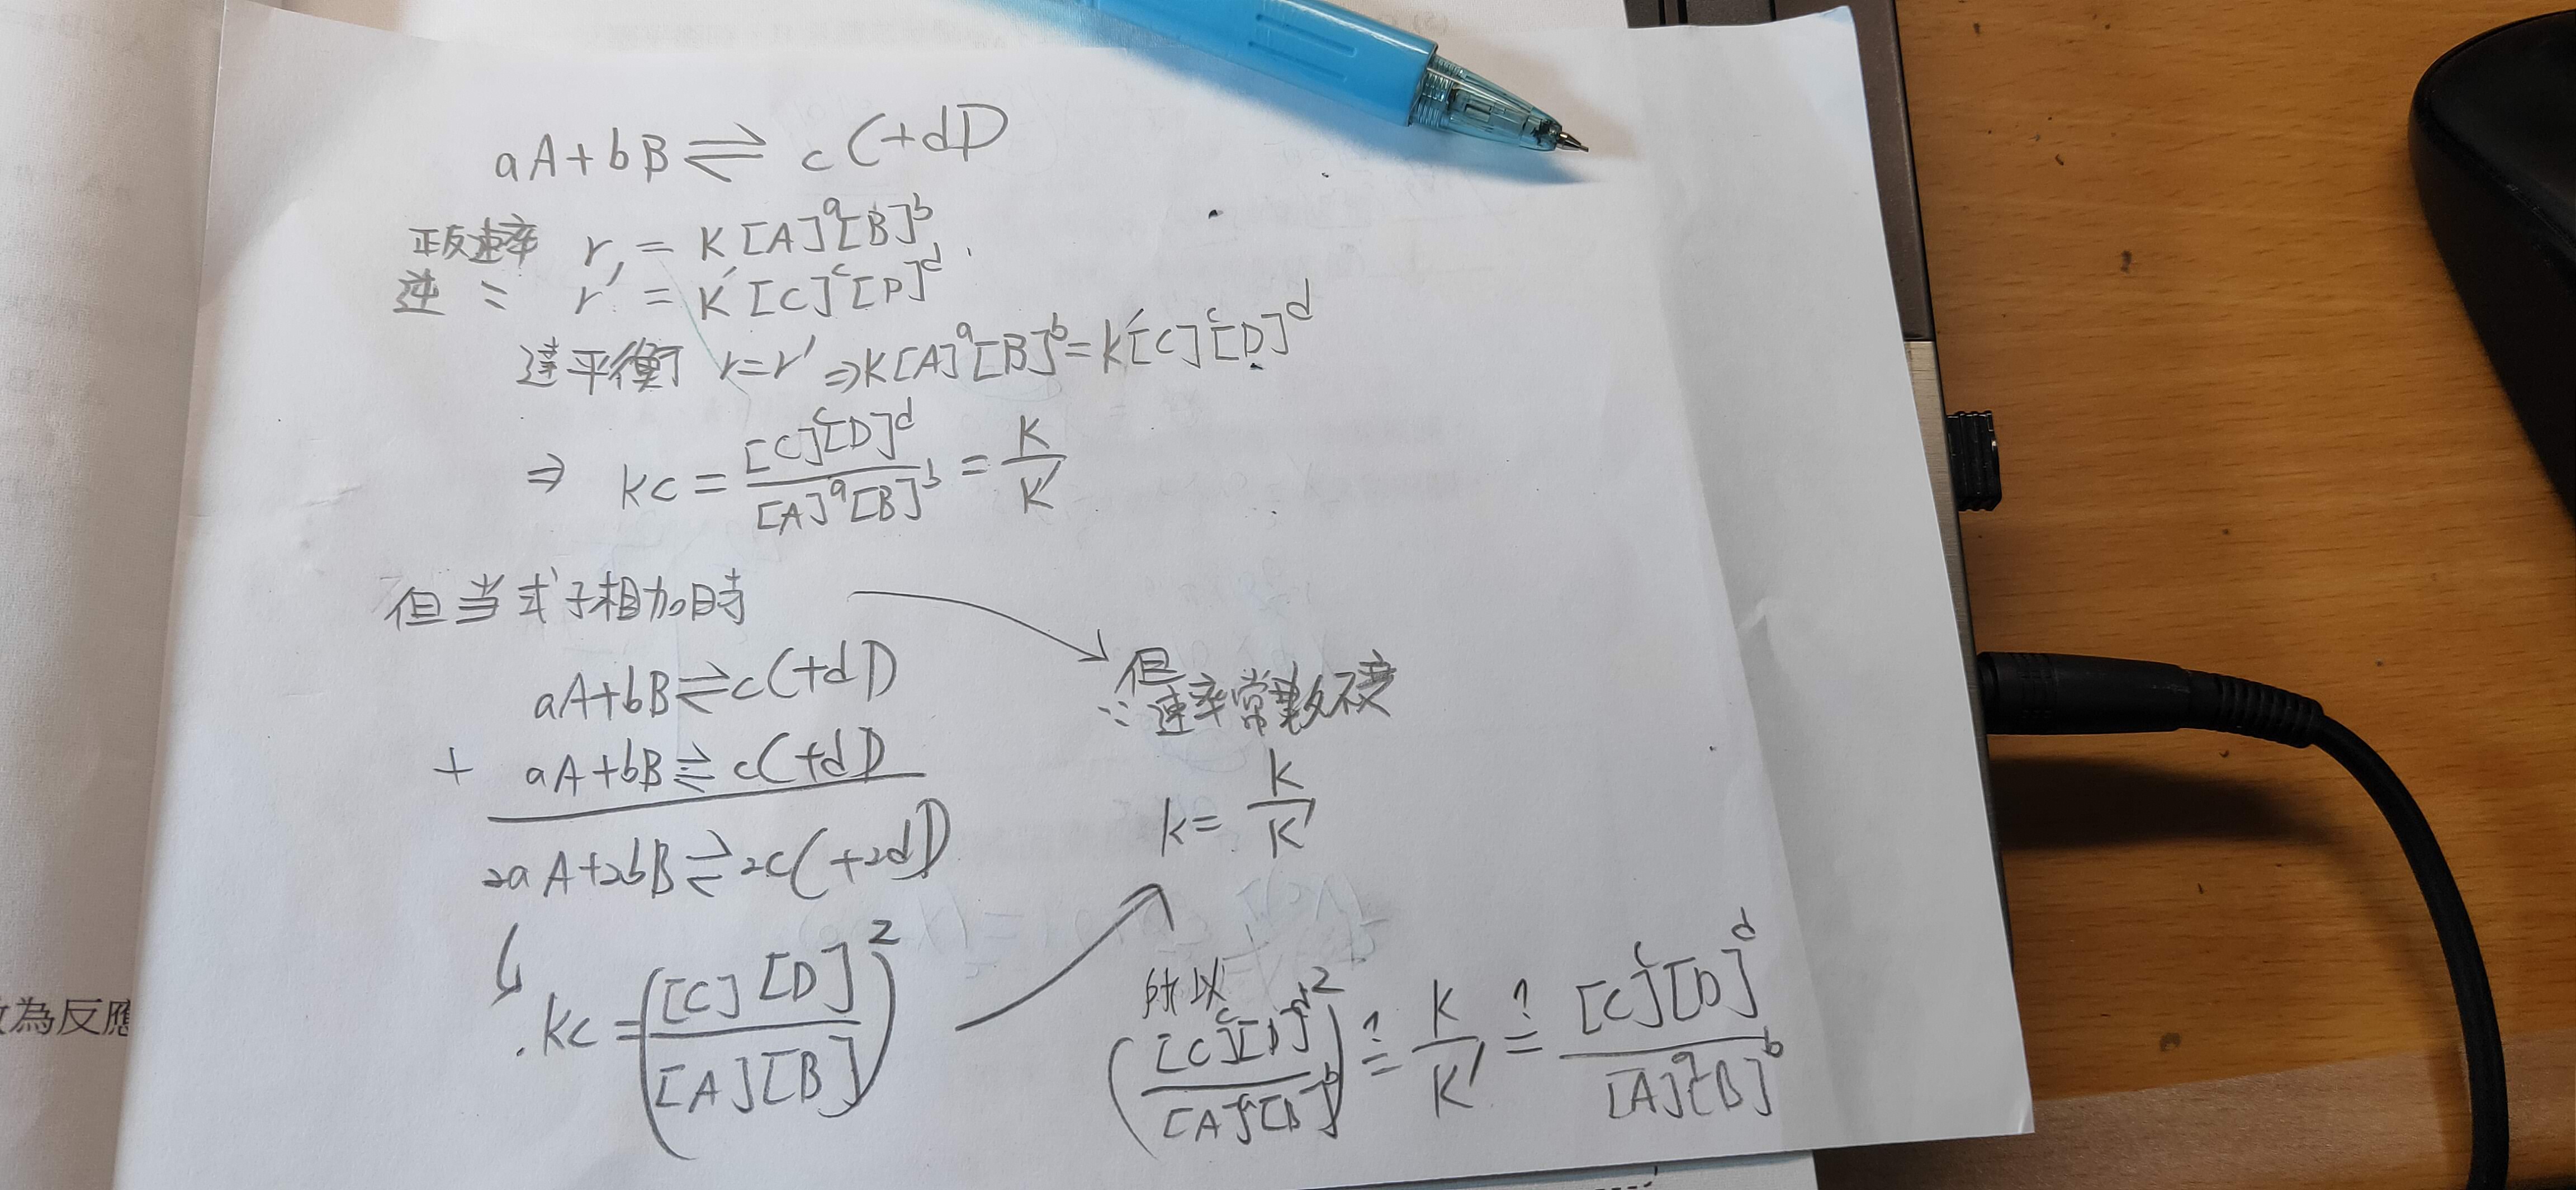 aA+bB⇌cC+dD
正反速率 r = K[A]^a[B]^b
逆 〃 r' = K'[C]^c[D]^d
達平衡 r=r' ⇒K[A]^a[B]^b=K'[C]^c[D]^d
⇒ kc = [C]^c[D]^d/[A]^a[B]^b = K/K'
但当式子相加時
aA+bB⇌cC+dD
+ aA+bB⇌cC+dD
2aA+2bB⇌2cC+2dD
↳ kc=([C][D]/[A][B])^2
但
∵速率常數不變
k=K/K'
所以
([C]^c[D]^d/[A]^a[B]^b)^2 ≟ K/K' ≟ [C]^c[D]^d/[A]^a[B]^b
為反應